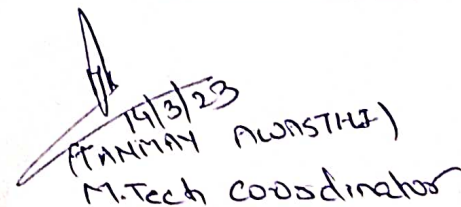 14/3/23
(TANMAY AWASTHI)
M.Tech coordinator